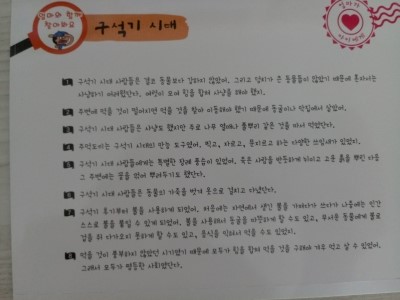 엄마와 함께
찾아봐요
구석기 시대
엄마가
아이에게
1 구석기 시대 사람들은 결코 동물보다 강하지 않았어. 그리고 덩치가 큰 동물들이 많았기 때문에 혼자서는
사냥하기 어려웠단다. 여럿이 모여 힘을 합쳐 사냥을 해야 했지.
2 주변에 먹을 것이 떨어지면 먹을 것을 찾아 이동해야 했기 때문에 동굴이나 막집에서 살았어.
3 구석기 시대 사람들은 사냥도 했지만 주로 나무 열매나 풀뿌리 같은 것을 따서 먹었단다.
4 주먹도끼는 구석기 시대의 만능 도구였어. 찍고, 자르고, 문지르고 하는 다양한 쓰임새가 있었지.
5 구석기 시대 사람들에게는 특별한 장례 풍습이 있었어. 죽은 사람을 반듯하게 뉘이고 고운 흙을 뿌린 다음
그 주변에는 꽃을 꺾어 뿌려주기도 했단다.
6 구석기 시대 사람들은 동물의 가죽을 벗겨 옷으로 걸치고 다녔단다.
7 구석기 후기부터 불을 사용하게 되었어. 처음에는 자연에서 생긴 불을 가져다가 쓰다가 나중에는 인간
스스로 불을 붙일 수 있게 되었어. 불을 사용해서 동굴을 따뜻하게 할 수도 있고, 무서운 동물에게 불로
겁을 줘 다가오지 못하게 할 수도 있고, 음식을 익혀서 먹을 수도 있었지.
8 먹을 것이 풍부하지 않았던 시기였기 때문에 모두가 힘을 합쳐 먹을 것을 구해야 겨우 먹고 살 수 있었어.
그래서 모두가 평등한 사회였단다.